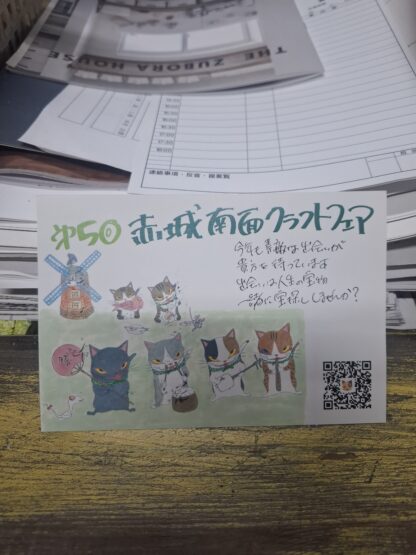 THE ZUBORA HOUSE
16:00
17:00
18:00
連絡事項・反省・提案覧
第50 赤城南面クラフトフェア
今年も素敵な出会いが
貴方を待っています
出会いは人生の宝物
一緒に宝探ししませんか?